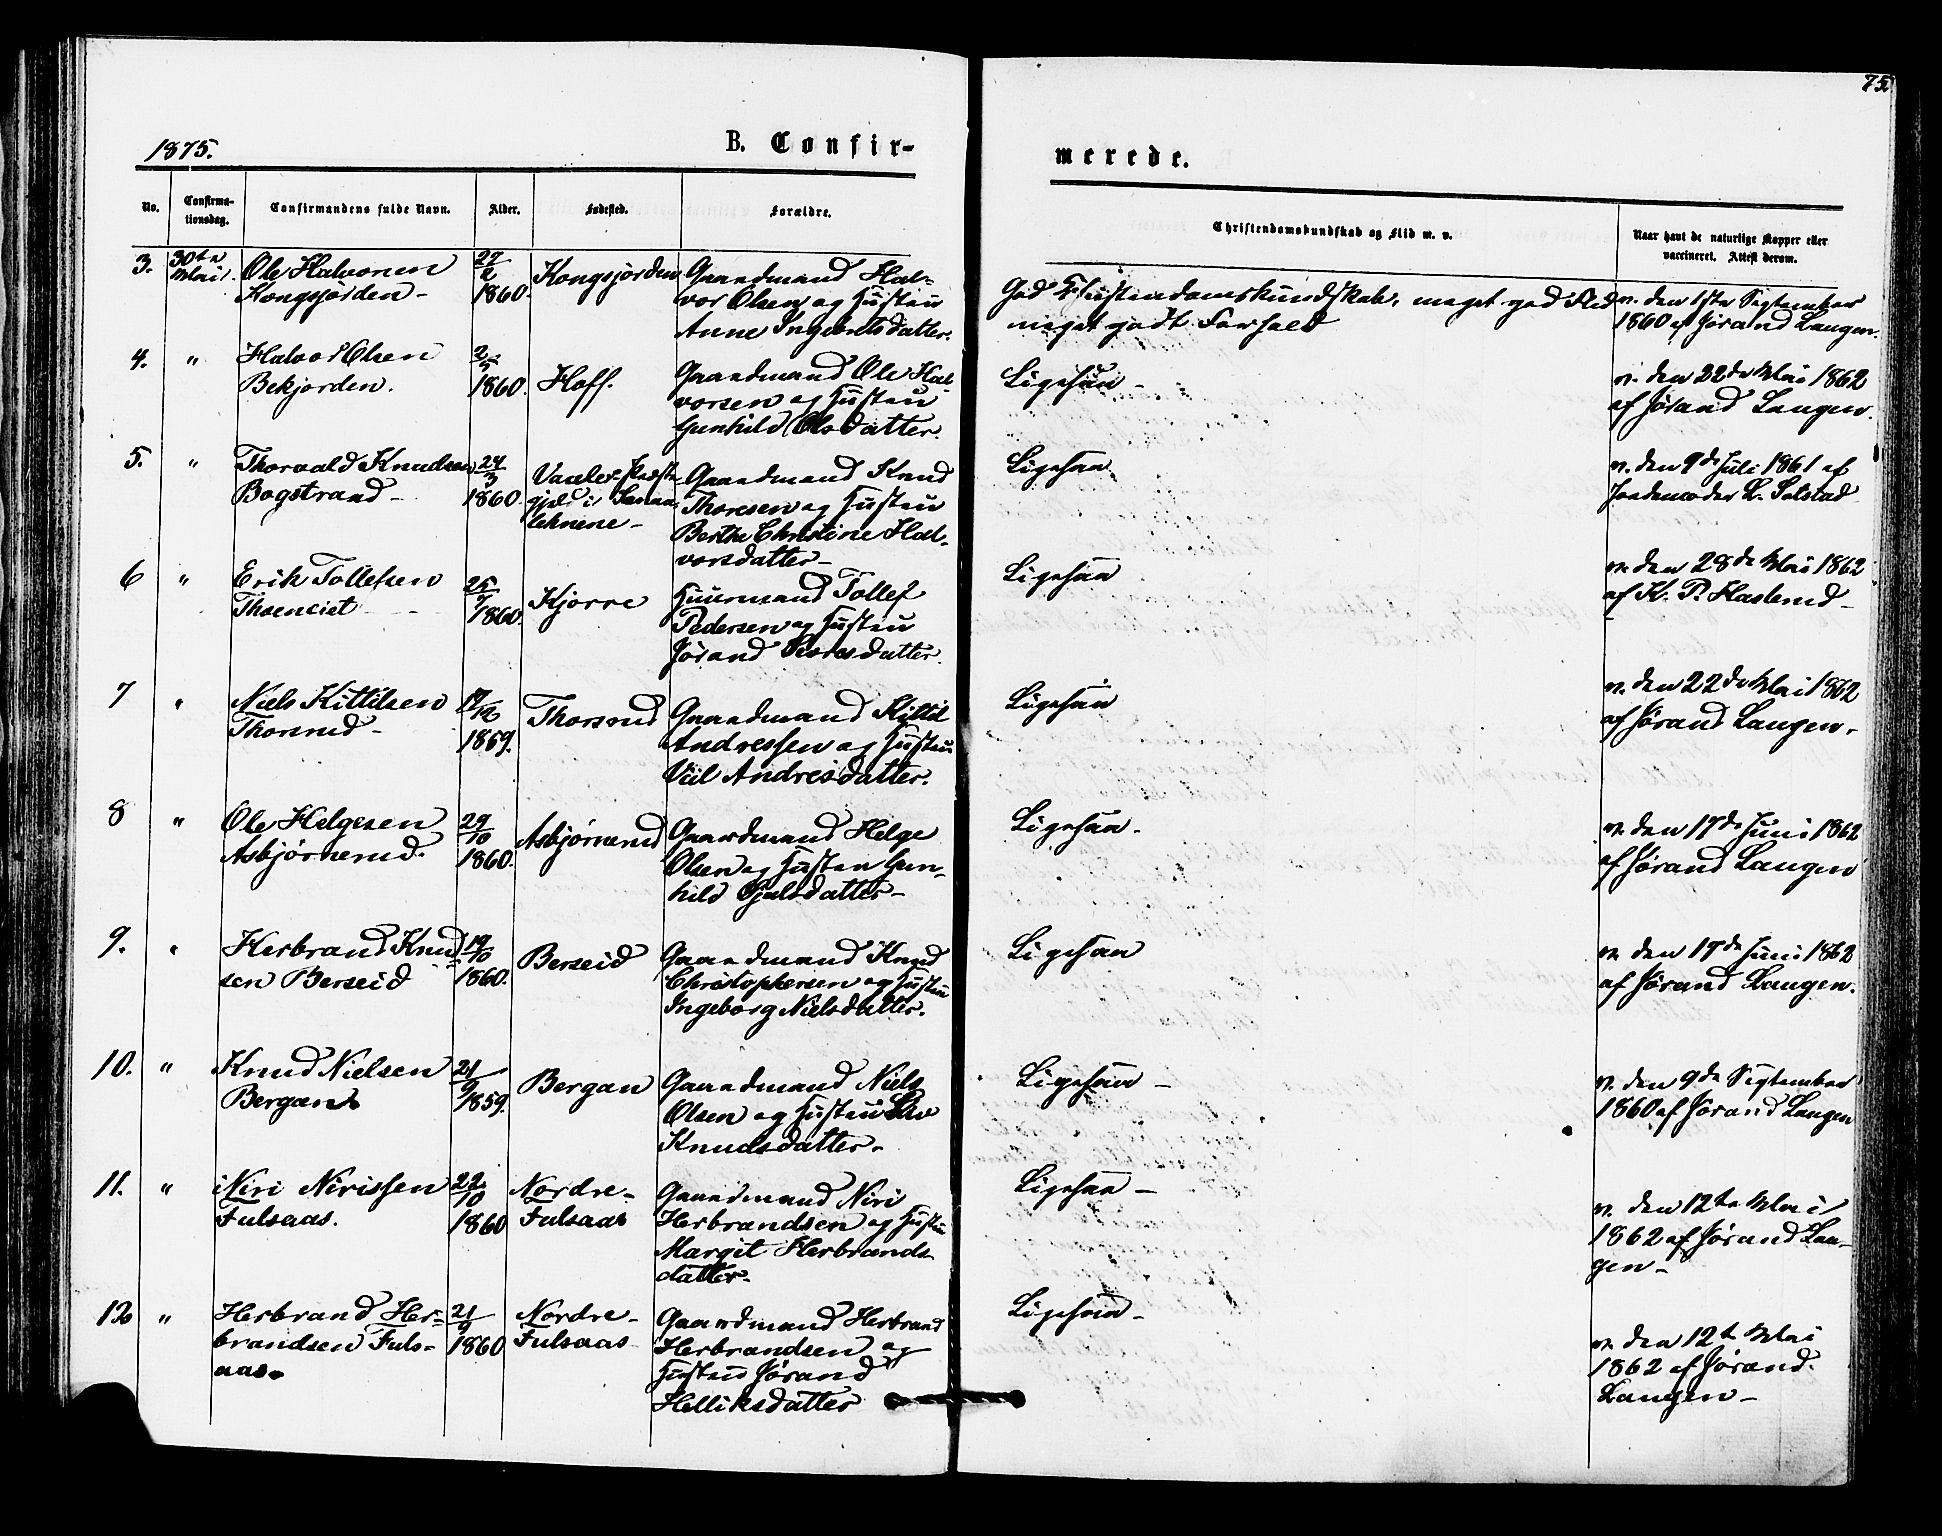 75
1875.
B. Confir-
merede.
No.
Confirma-
tionsdag.
Confirmandens fulde Navn.
Alder.
Fødested.
Forældre.
Christendomskundskab og Flid m. v.
Naar havt de naturlige Kopper eller
vaccineret. Attest derom.
3. 30te Mai. Ole Halvorsen 27/2 Kongsjorden Gaardmand Hal-
Kongsjorden- 1860. vor Olsen og Hustru
Anne Ingebretsdatter.
God Christendomskundskab, meget god Flid
meget godt Forhold
v. den 1ste September
1860 af Jørand Langen.
4. " Halvor Olsen 2/5 Hoff. Gaardmand Ole Hal-
Bekjorden. 1860. vorsen og Hustru
Gunhild Olsdatter.
Ligesaa-
v. den 22de Mai 1862
af Jørand Langen.
5. " Thorvald Knudsen 24/3 Vaaler Præste- Gaardmand Knud
Bogstrand- 1860. gjæld i Smaa- Thoresen og Hustru
lehnene- Berthe Christine Hal-
vorsdatter-
Ligesaa
v. den 9de Juli 1861 af
Jordemoder L. Solstad
6 " Erik Tollefsen 25/7 Kjørre Huusmand Tollef
1860. Pedersen og Hustru
Jørand
Ligesaa
v. den 28de Mai 1862
af K. P. Haslerud-
7 " Niels Kittilsen 17/12 Thorsrud Gaardmand Kittil
Thorsrud- 1859. Andressen og Hustru
Viil Andresdatter.
Ligesaa
v. den 22de Mai 1862
af Jørand Langen-
8 " Ole Helgesen 29/10 Asbjørnerud Gaardmand Helge
Asbjørnerud. 1860. Olsen og Hustru Gun-
hild Gjulsdatter-
Ligesaa-
v. den 17de Juni 1862
af Jørand Langen
9. " Herbrand Knud- 19/10 Berseid Gaardmand Knud
sen Berseid 1860. Christophersen og Hustru
Ingeborg Nielsdatter.
Ligesaa
v. den 17de Juni 1862
af Jørand Langen.
10. " Knud Nielsen 21/9 Bergan Gaardmand Niels
Bergan 1859. Olsen og Hustru Liv
Knudsdatter-
Ligesaa-
v. den 9de September
1860 af Jørand Langen
11. " Niri Nirissen 22/10 Nordre- Gaardmand Niri
Fulsaas. 1860 Fulsaas Herbrandsen og Hustru
Margit Herbrands-
datter-
Ligesaa-
v. den 12te Mai
1862 af Jørand Lan-
gen-
12 " Herbrand Her- 21/9 Nordre- Gaardmand Herbrand
brandsen Fuls- 1860 Fulsaas Herbrandsen og
aas. Hustru Jørand
Helliksdatter
Ligesaa-
v. den 12te Mai
1862 af Jørand.
Langen-